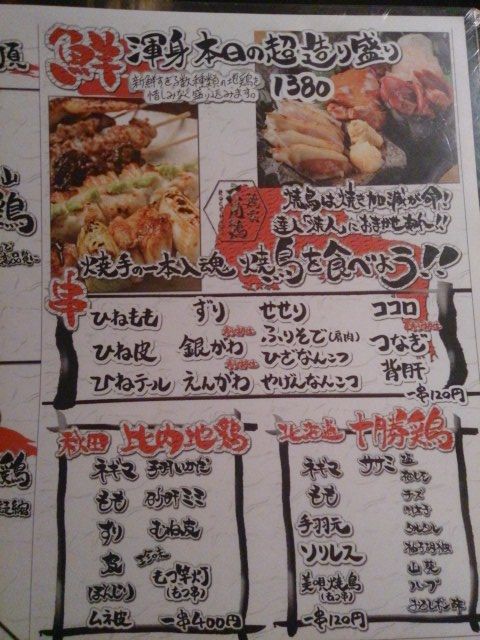 鮮 渾身本日の超造り盛り
新鮮すぎる数種類の地鶏を
惜しみなく盛り込みます。
1380
焼鳥は焼き加減が命!
達人「味人」におまかせあれ〜!!
焼手の一本入魂 焼鳥を食べよう!!
串
ひねもも ずり せせり ココロ
ひね皮 銀がわ ふりそで(肩肉) つなぎ
ひざなんこつ
ひねテール えんがわ やげんなんこつ 背肝
一串120円
秋田 比内地鶏
ネギマ 手羽いかだ
もも 砂肝ミミ
ずり むね皮
皮
ぼんじり もつ竿灯
(もつ串)
ムネ皮 一串400円
北海道 十勝鶏
ネギマ ササミ 塩
もも わさび
チーズ
手羽元 明太子
ソリレス
美唄焼鳥 山葵
(もつ串)
ハーブ
一串120円 おろしポン酢